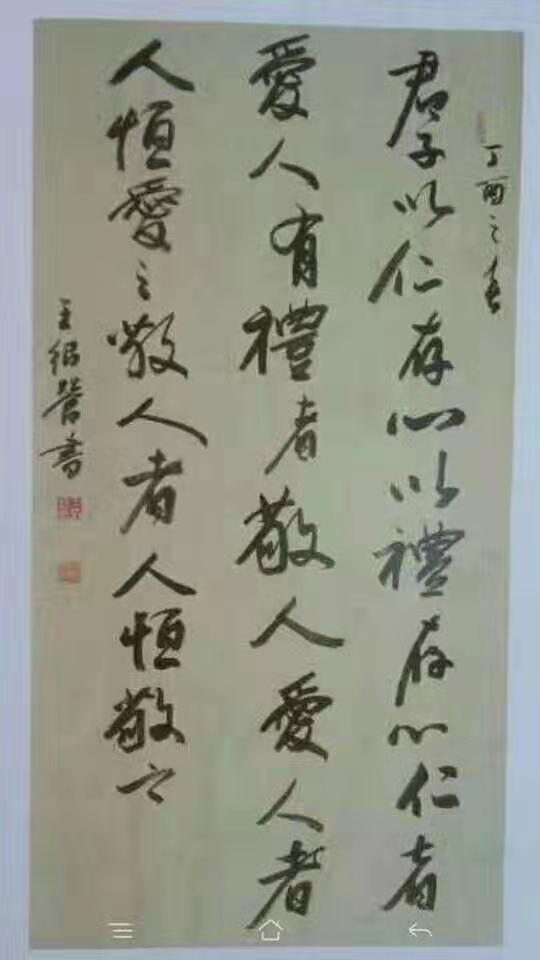 丁酉之春
君子以仁存心以禮存心仁者
愛人有禮者敬人愛人者
人恒愛之敬人者人恒敬之
王紹營書